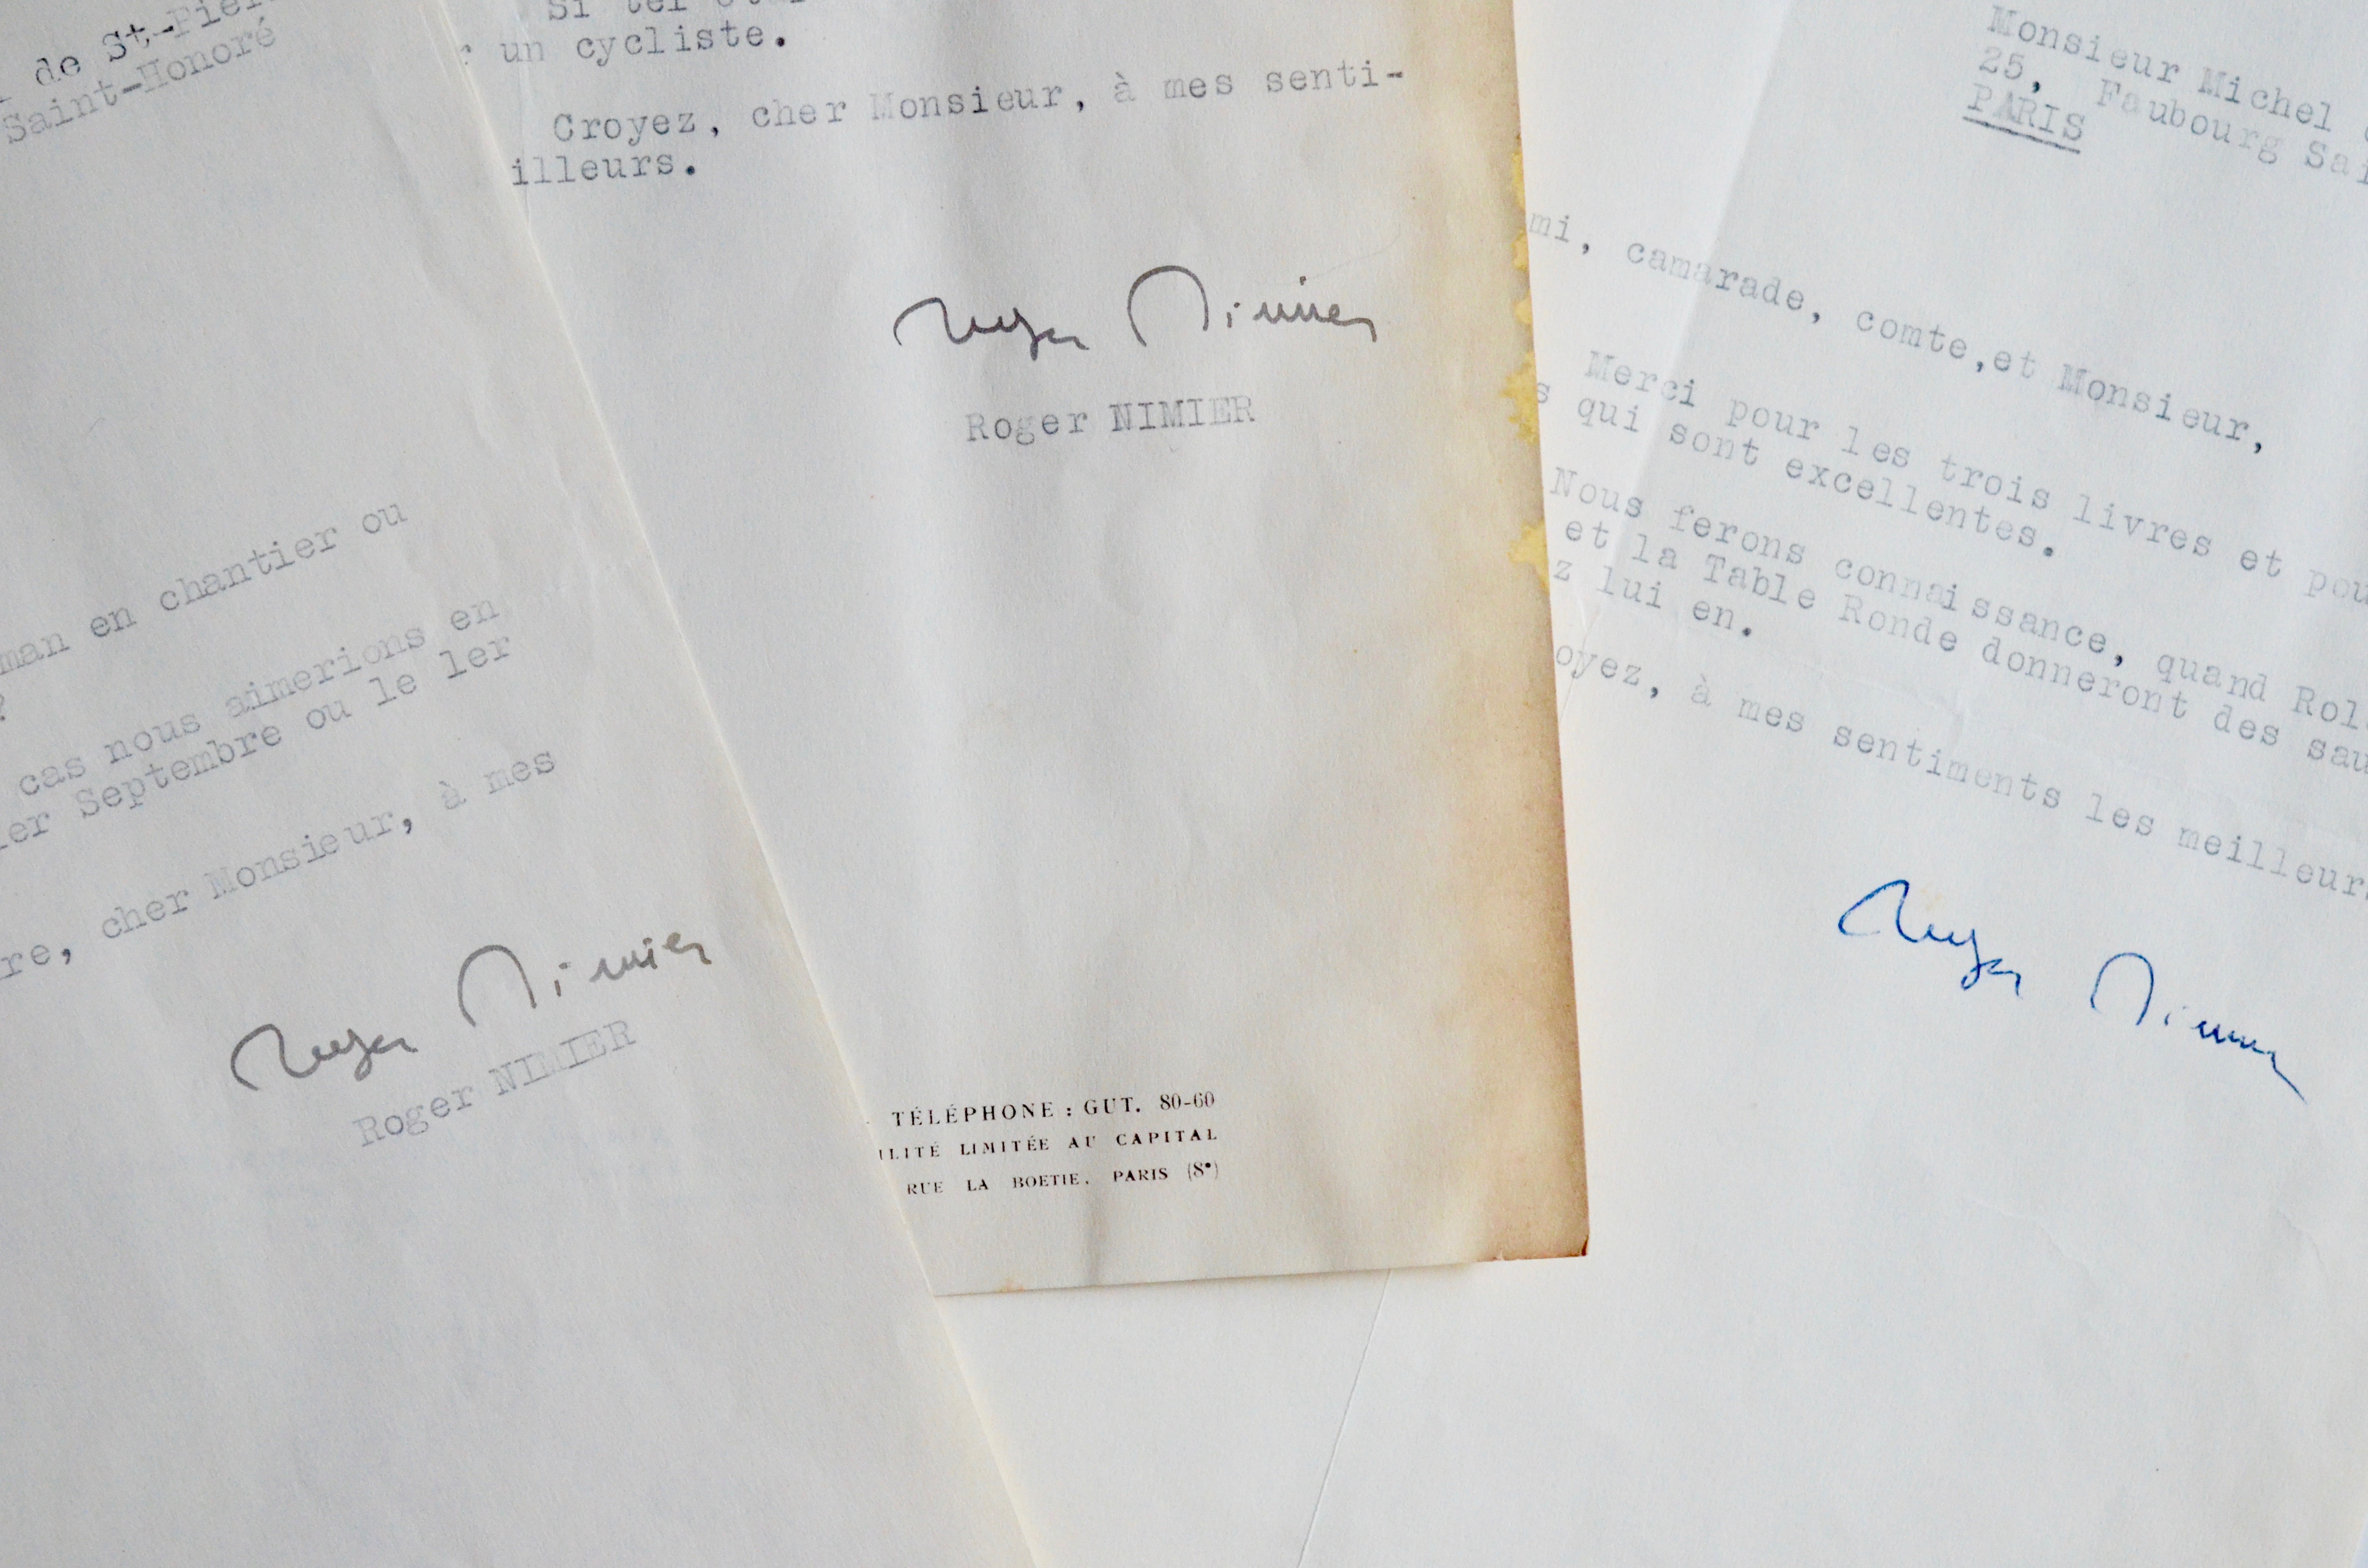 de St-Pier
Saint-Honoré
man en chantier ou
?
cas nous aimerions en
er Septembre ou le 1er
re, cher Monsieur, à mes
Roger Nimier
Roger NIMIER
Si tel
un cycliste.
Croyez, cher Monsieur, à mes senti-
illeurs.
Roger Nimier
Roger NIMIER
TÉLÉPHONE : GUT. 80-60
ILITÉ LIMITÉE AU CAPITAL
RUE LA BOETIE, PARIS (8e)
Monsieur Michel
25, Faubourg Sai
PARIS
mi, camarade, comte,et Monsieur,
Merci pour les trois livres et pou
s qui sont excellentes.
Nous ferons connaissance, quand Rol
et la Table Ronde donneront des sau
z lui en.
oyez, à mes sentiments les meilleurs
Roger Nimier